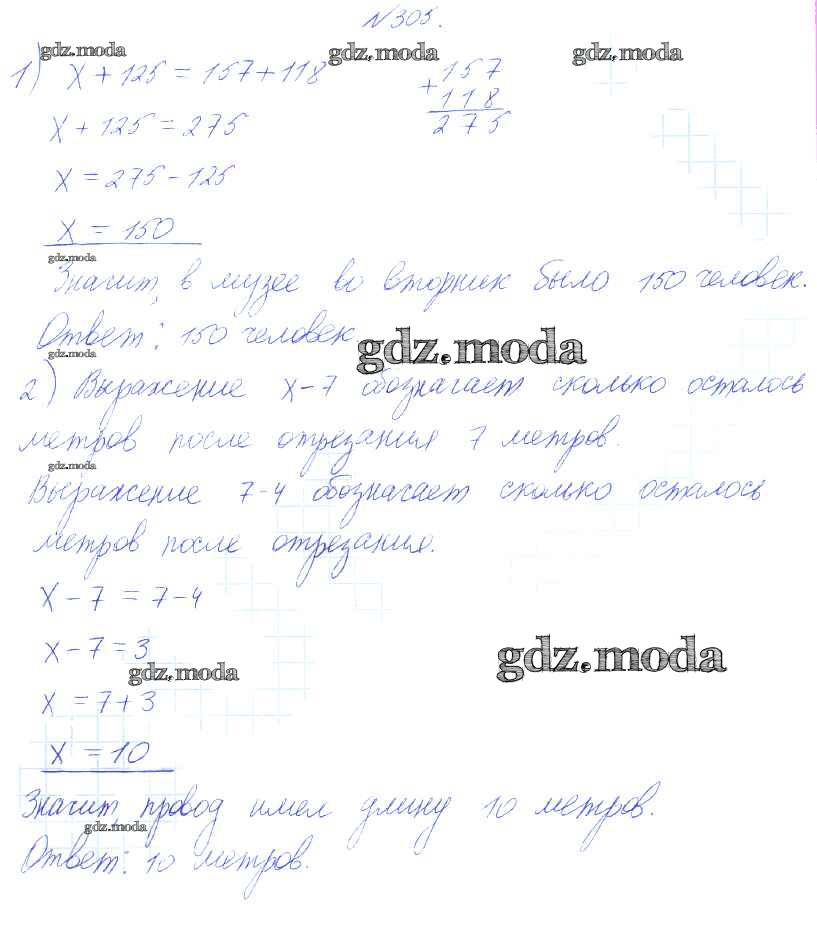 №305.
gdz.moda gdz.moda gdz.moda
1) x + 125 = 157 + 118
+ 157
118
275
x + 125 = 275
x = 275 - 125
x = 150
gdz.moda
Значит, в музее во вторник было 150 человек.
Ответ: 150 человек
gdz.moda
gdz.moda
2) Выражение x - 7 обозначает сколько осталось
метров после отрезания 7 метров.
gdz.moda
Выражение 7 - 4 обозначает сколько осталось
метров после отрезания.
x - 7 = 7 - 4
x - 7 = 3
gdz.moda
gdz.moda
x = 7 + 3
x = 10
Значит, провод имел длину 10 метров.
gdz.moda
Ответ: 10 метров.